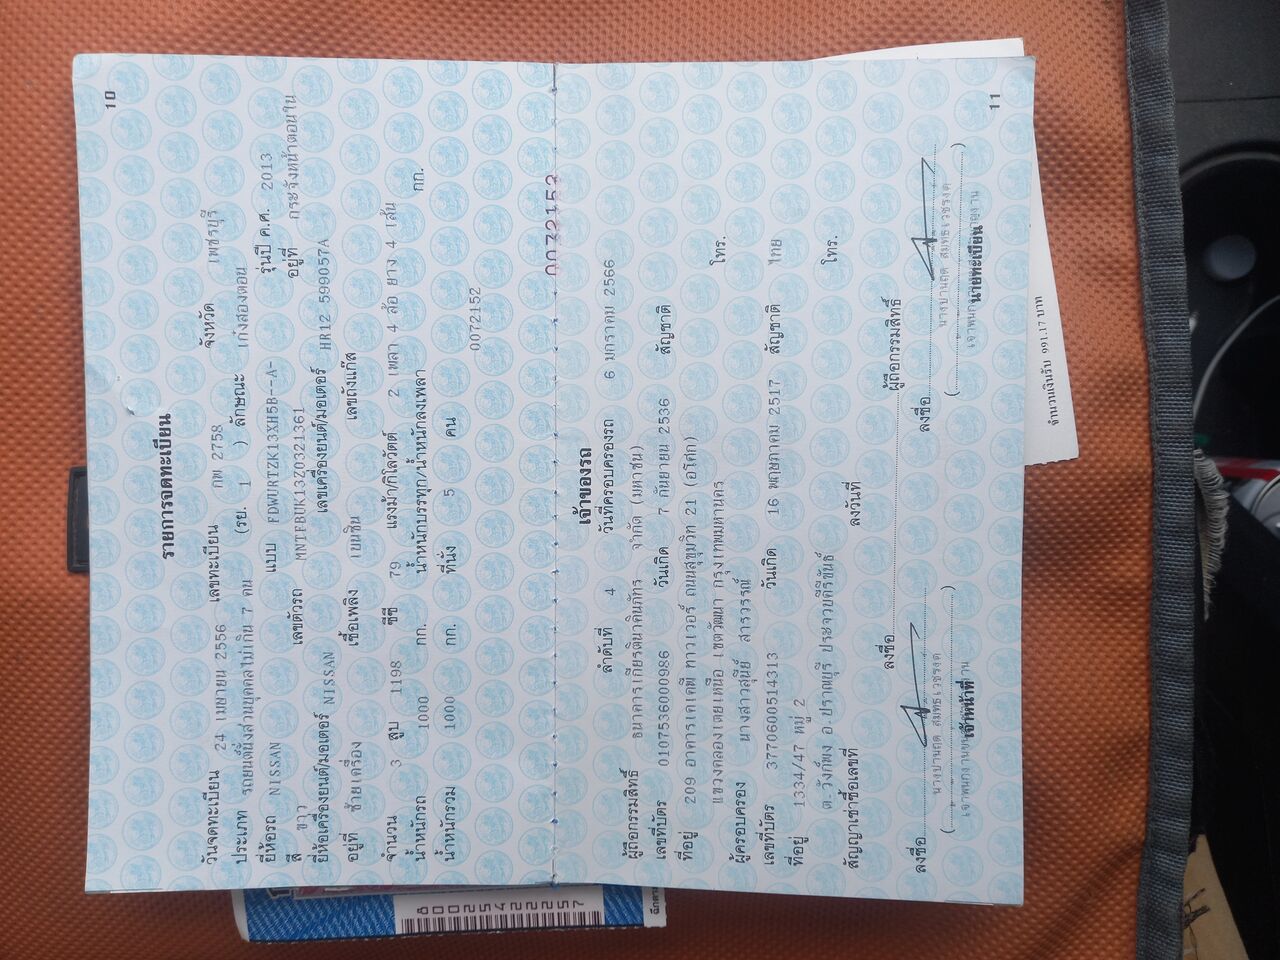 10
รายการจดทะเบียน
วันจดทะเบียน 24 เมษายน 2556 เลขทะเบียน กพ 2758 จังหวัด เพชรบุรี
ประเภท รถยนต์นั่งส่วนบุคคลไม่เกิน 7 คน (รย. 1 ) ลักษณะ เก๋งสองตอน
ยี่ห้อรถ NISSAN แบบ FDWURTZK13XH5B--A- รุ่นปี ค.ศ. 2013
สี ขาว เลขตัวรถ MNTFBUK13Z0321361 อยู่ที่ กระจังหน้าตอนใน
ยี่ห้อเครื่องยนต์/มอเตอร์ NISSAN เลขเครื่องยนต์/มอเตอร์ HR12 599057A
อยู่ที่ ซ้ายเครื่อง เชื้อเพลิง เบนซิน เลขถังแก๊ส
จำนวน 3 สูบ 1198 ซีซี 79 แรงม้า/กิโลวัตต์ 2 เพลา 4 ล้อ ยาง 4 เส้น
น้ำหนักรถ 1000 กก. น้ำหนักบรรทุก/น้ำหนักลงเพลา กก.
น้ำหนักรวม 1000 กก. ที่นั่ง 5 คน
0072152
0072152
11
เจ้าของรถ
ลำดับที่ 4 วันที่ครอบครองรถ 6 มกราคม 2566
ผู้ถือกรรมสิทธิ์ ธนาคารเกียรตินาคินภัทร จำกัด (มหาชน)
เลขที่บัตร 0107536000986 วันเกิด 7 กันยายน 2536 สัญชาติ
ที่อยู่ 209 อาคารเคเคพี ทาวเวอร์ ถนนสุขุมวิท 21 (อโศก)
แขวงคลองเตยเหนือ เขตวัฒนา กรุงเทพมหานคร โทร.
ผู้ครอบครอง นางสาวสุนีย์ สารวรรณ์
เลขที่บัตร 3770600514313 วันเกิด 16 พฤษภาคม 2517 สัญชาติ ไทย
ที่อยู่ 1334/47 หมู่ 2
ต.วังก์พง อ.ปราณบุรี ประจวบคีรีขันธ์ โทร.
สัญญาเช่าซื้อเลขที่ ลงวันที่
ลงชื่อ ผู้ถือกรรมสิทธิ์
ลงชื่อ ลงชื่อ
เจ้าหน้าที่ นายทะเบียน
จำนวนเงินรับ 991.17 บาท
8002542222257